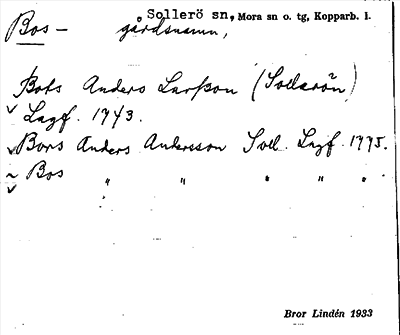 Sollerö sn, Mora sn o. tg, Kopparb. l.
Bos - gårdsnamn,
Bots Anders Larsson (Sollerön)
Lagf. 1743.
Bors Anders Andersson Soll. Lagf. 1775.
~ Bos " " " " "
Bror Lindén 1933